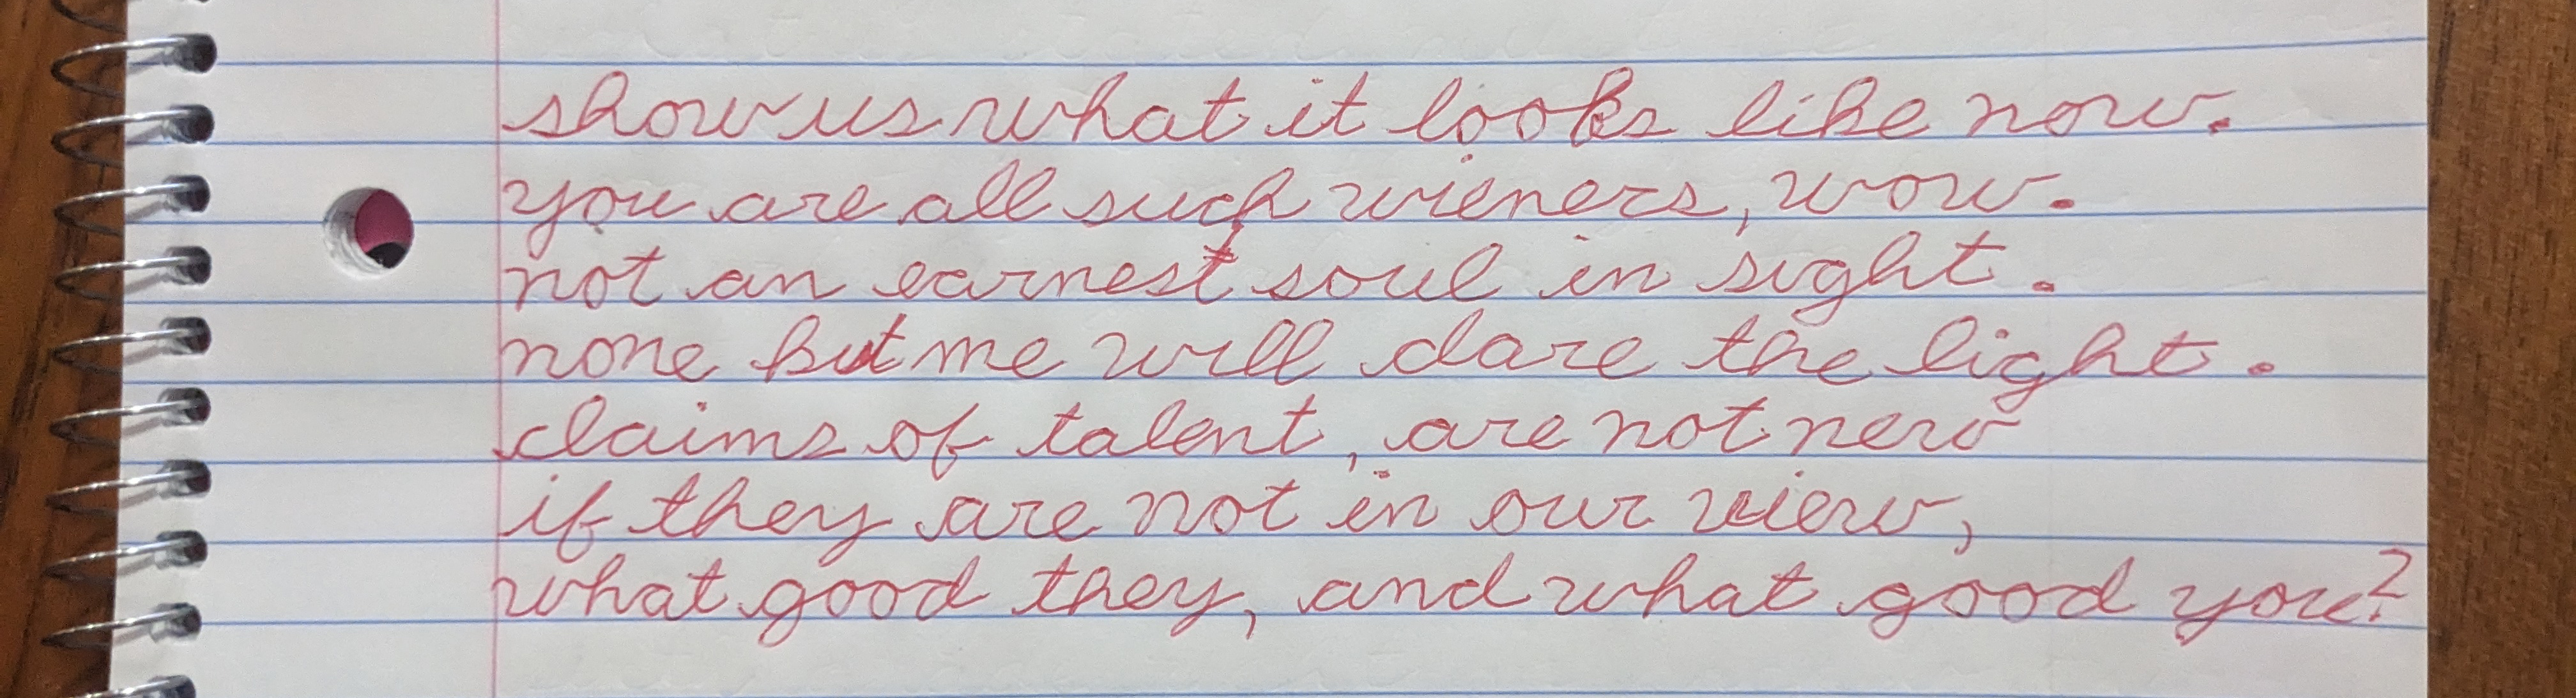 show us what it looks like now.
you are all such wieners, wow.
not an earnest soul in sight.
none but me will dare the light.
claims of talent, are not new
if they are not in our view,
what good they, and what good you?